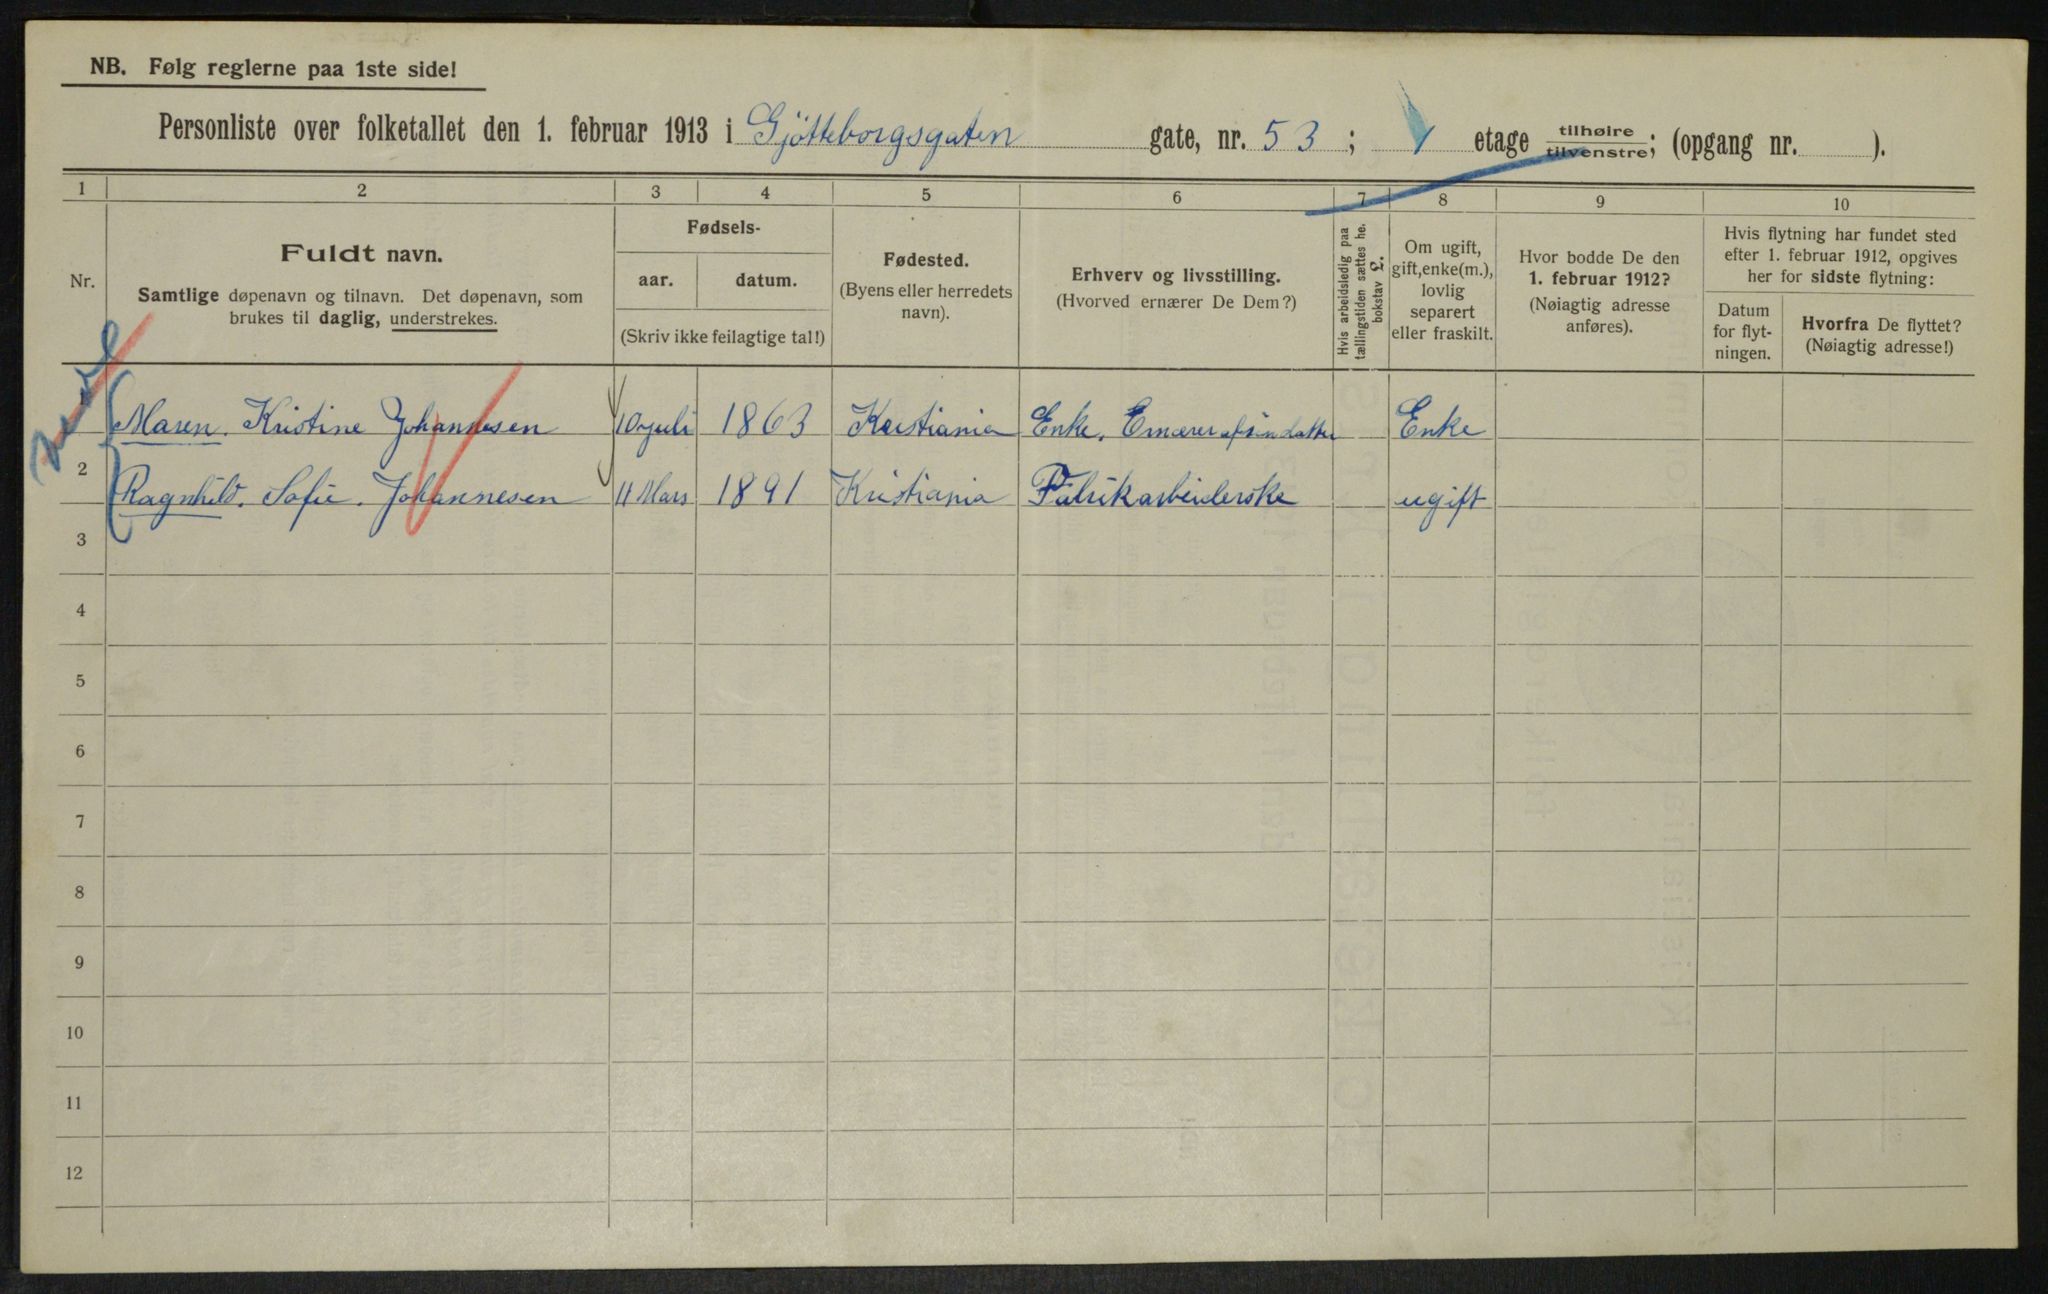 NB. Følg reglerne paa 1ste side!
Personliste over folketallet den 1. februar 1913 i Gjötteborgsgaten gate, nr. 53; 1 etage tilhøire tilvenstre; (opgang nr. ).
1 2 3 4 5 6 7 8 9 10
Nr.
Fuldt navn.
Samtlige døpenavn og tilnavn. Det døpenavn, som
brukes til daglig, understrekes.
Fødsels-
aar. datum.
(Skriv ikke feilagtige tal!)
Fødested.
(Byens eller herredets
navn).
Erhverv og livsstilling.
(Hvorved ernærer De Dem?)
Hvis arbeidsledig paa
tællingstiden sættes he.
bokstav L.
Om ugift,
gift, enke(m.),
lovlig
separert
eller fraskilt.
Hvor bodde De den
1. februar 1912?
(Nøiagtig adresse
anføres).
Hvis flytning har fundet sted
efter 1. februar 1912, opgives
her for sidste flytning:
Datum
for flyt-
ningen.
Hvorfra De flyttet?
(Nøiagtig adresse!)
Maren. Kristine Johannesen 10 juli 1863 Kristiania Enke. Ernærer af sin datter Enke
2 Ragnhild. Sofie. Johannesen 11 Mars 1891 Kristiania Fabrikarbeiderske ugift
3
4
5
6
7
8
9
10
11
12